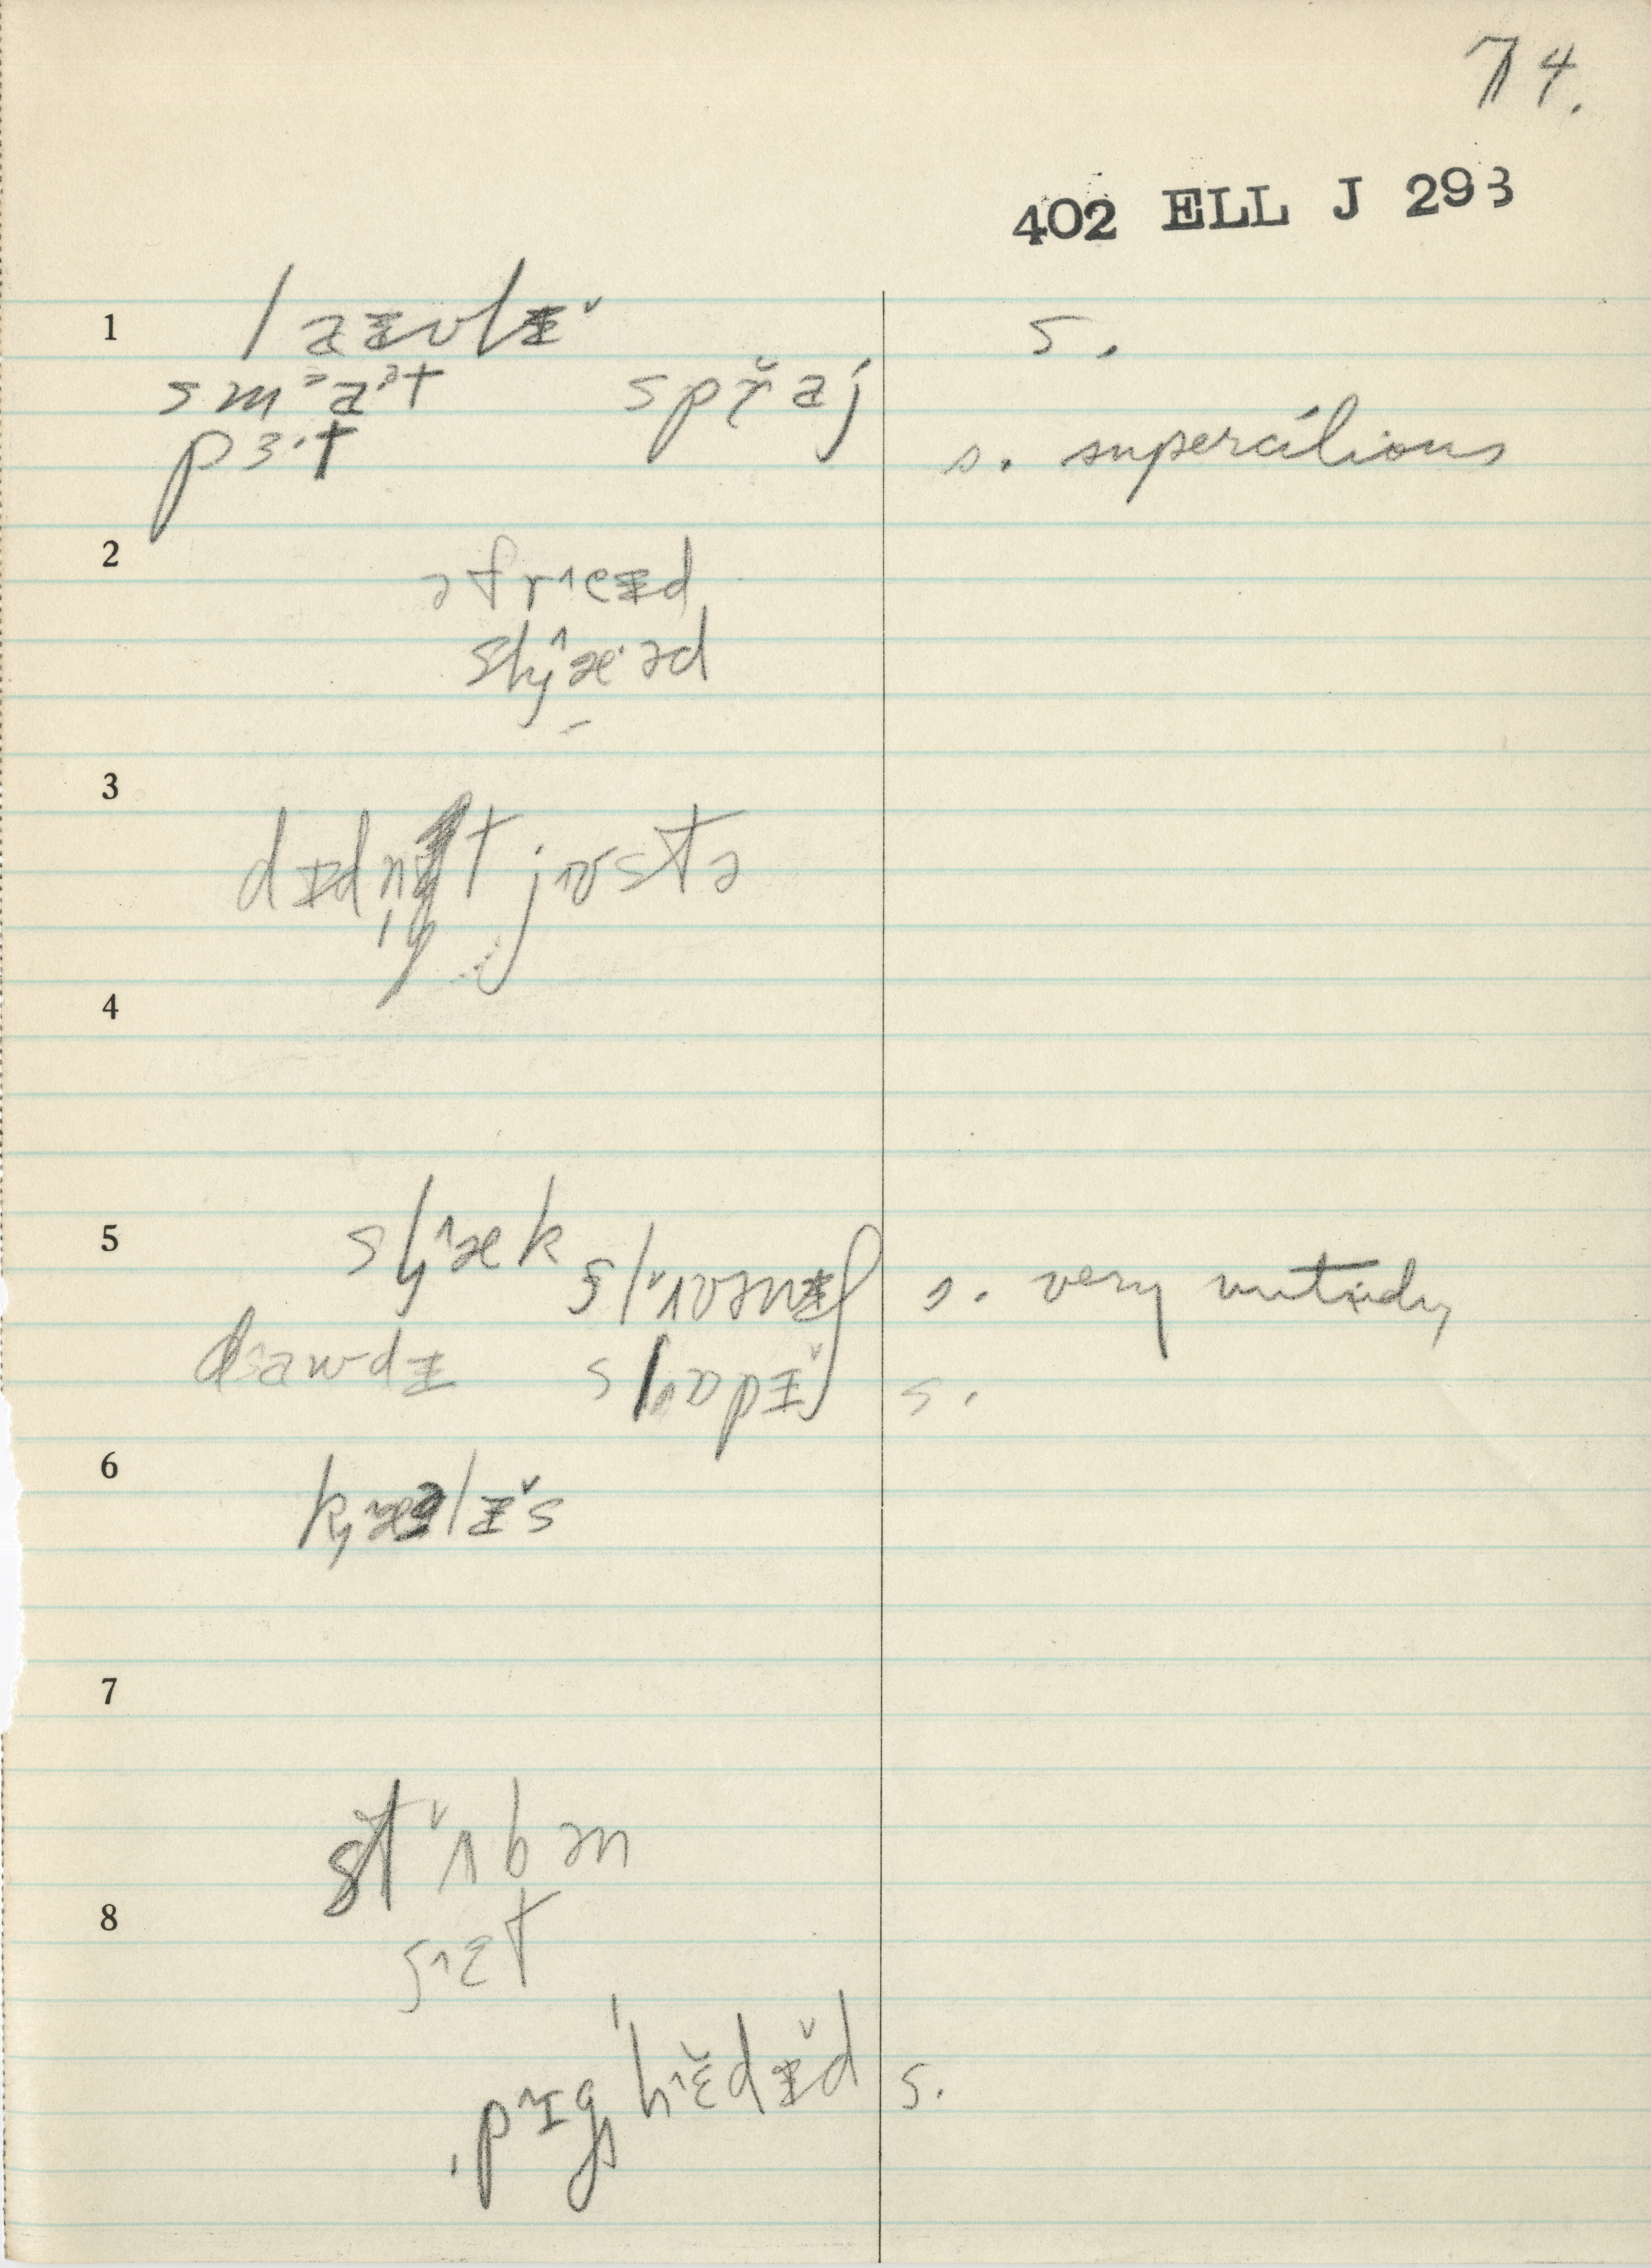 74.
402 ELL J 293
1 laɪvlɪ̆ s.
smᵊaᵊt spr̆aj
pɜ·t s. supercilious
2 əfr^eɪd
skj^æ·əd
3 dɪdn̩t jʌstə
4
5 sl^æk sl̆ʌvənlɪ̆ s. very untidy
dawdɪ slʌpɪ̆ s.
6 kæəlɪ̆s
7
st̆ʌbən
8 s^ɛt
ˌpɪgˈh^ɛ̆dɪ̆d s.